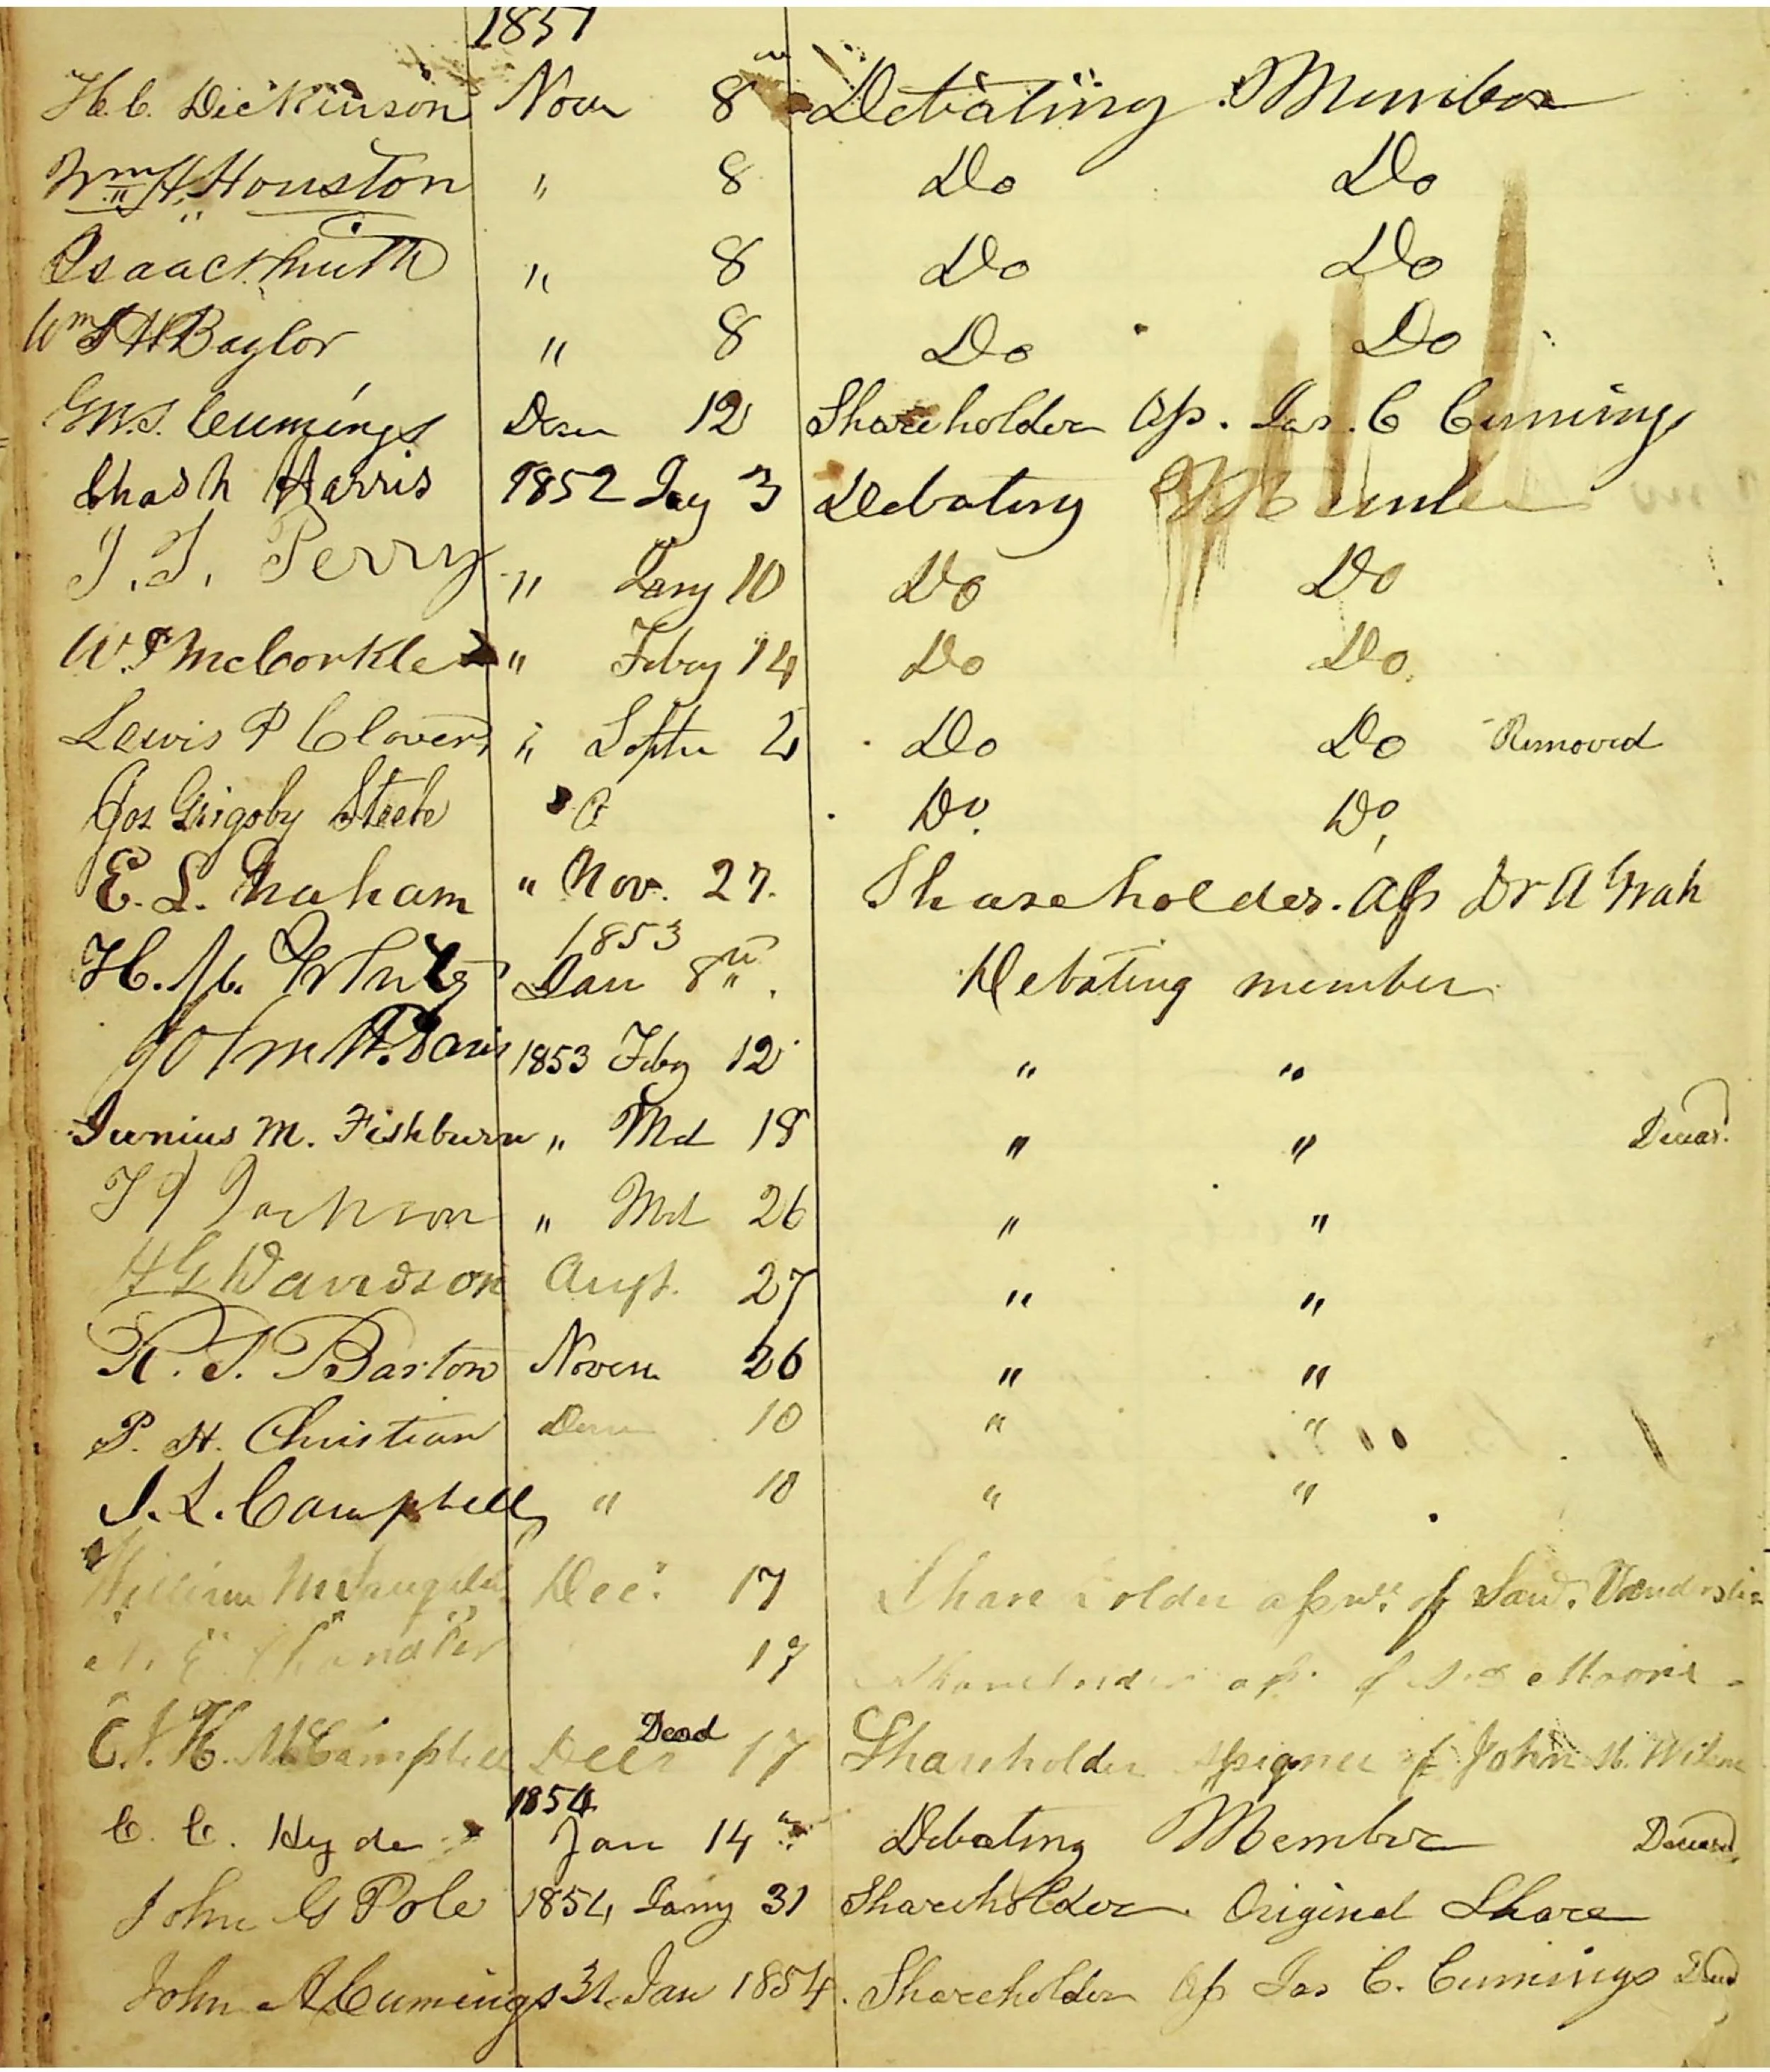 1851
H. C. Dickinson Novr 8th Debating Member
Wm H. Houston " 8 Do Do
Isaac Smith " 8 Do Do
Wm S H Baylor " 8 Do Do
G. W. S. Cumings Decr 12 Shareholder Ap. Jas. C Cumings
Chas h Harris 1852 Jay 3 Debating Member
J. J. Perry " Jany 10 Do Do
W. P McCorkle " Febry 14 Do Do
Lewis P Clover " Septr 2 Do Do Removed
Jos Grigsby Steele " Do Do
E. L. Graham " Nov. 27. Shareholder. Ap Dr A Grah
1853
H. M. Jany 8th. Debating member
John W. Davis 1853 Feby 12 " "
Junius M. Fishburn " Mch 18 " " Deceasd.
T J Jackson " Mch 26 " "
H G Davidson Augt. 27 " "
R. T. Barton Novem 26 " "
P. H. Christian Decr 10 " "
J. L. Campbell " 10 " "
William McLaughlin Decr. 17 Share holder of
Chandler 17 Shareholder of Moore
C. J. K. McCampbell Decr Dead 17 Shareholder of John
1854
C. C. Hyde Jan 14th Debating Member Deceased
John G Pole 1854 Jany 31 Shareholder Original Share
John A Cumings 31 Jan 1854. Shareholder Ap Jas C. Cumings Dead